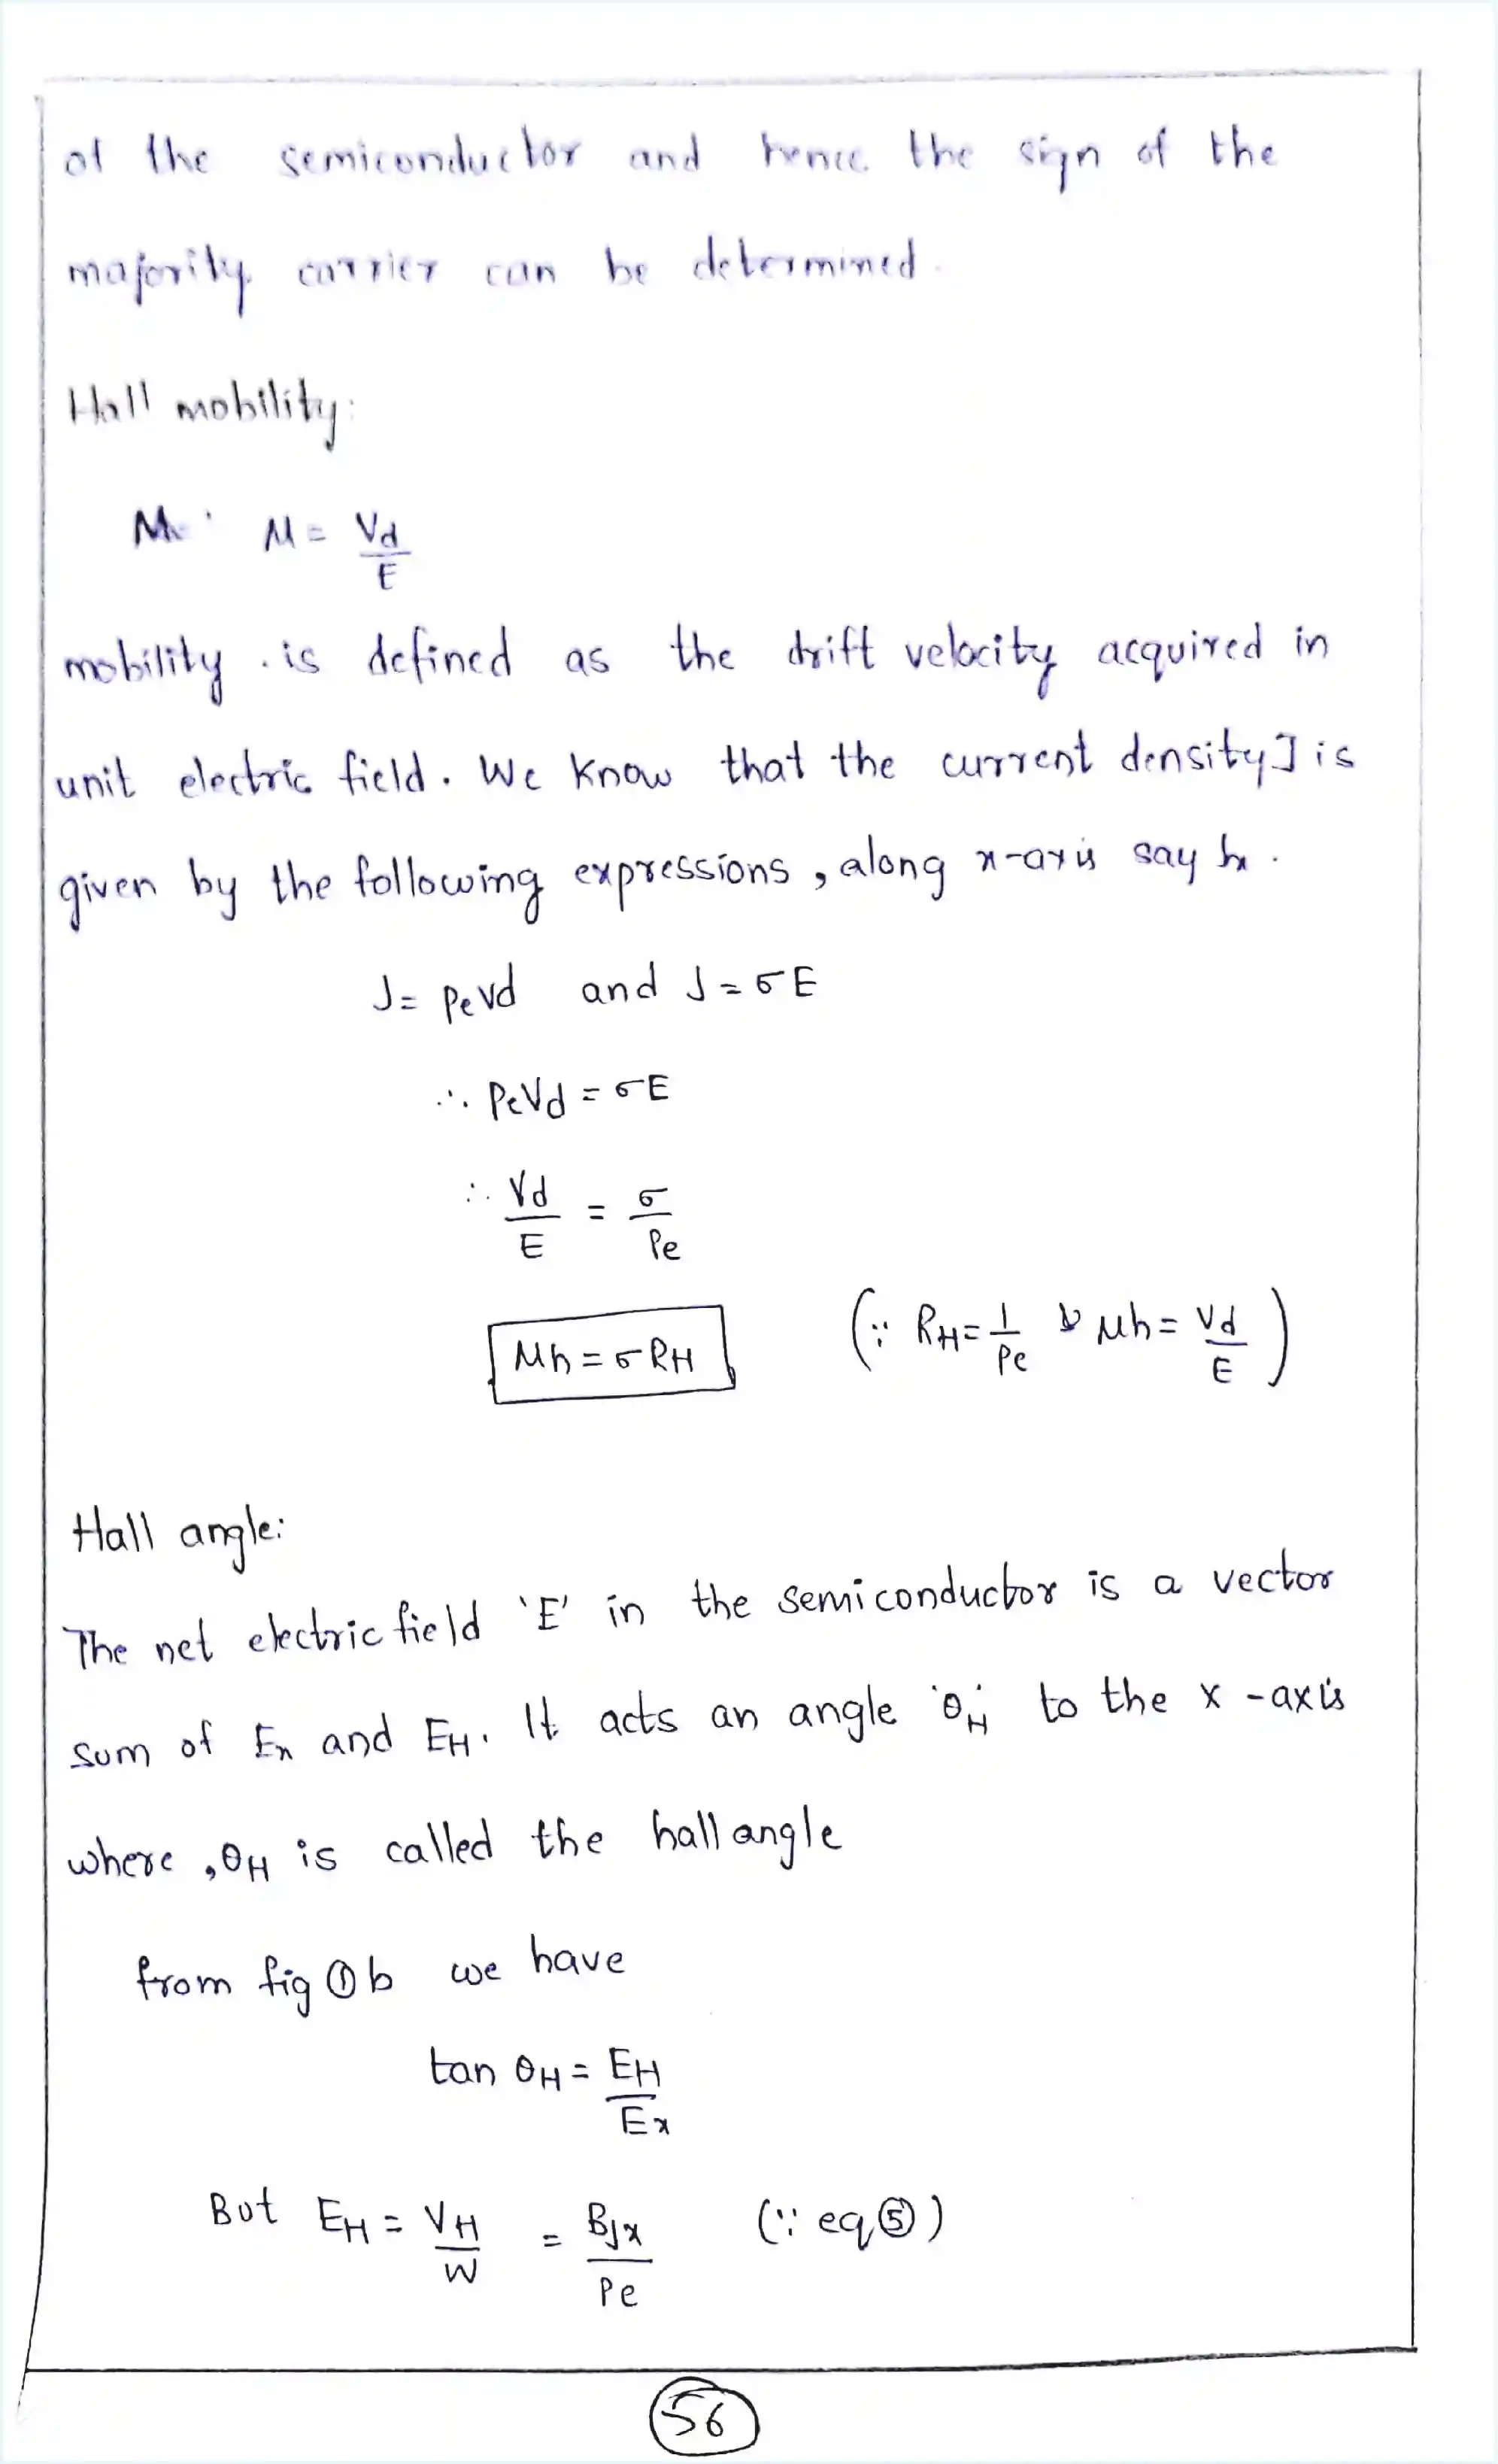 of the semiconductor and hence the sign of the
majority carrier can be determined.
Hall mobility:
μ = Vd/E
mobility is defined as the drift velocity acquired in
unit electric field. We know that the current density J is
given by the following expressions, along x-axis say
J = Pevd and J = σE
∴ PeVd = σE
∴ Vd/E = σ/Pe
μh = σRH (∵ RH = 1/Pe & μh = Vd/E)
Hall angle:
The net electric field 'E' in the semiconductor is a vector
sum of Ex and EH. It acts an angle 'θH' to the x-axis
where, θH is called the hall angle
from fig ① b we have
tan θH = EH/Ex
But EH = VH/W = BJx/Pe (∵ eq ⑤)
56